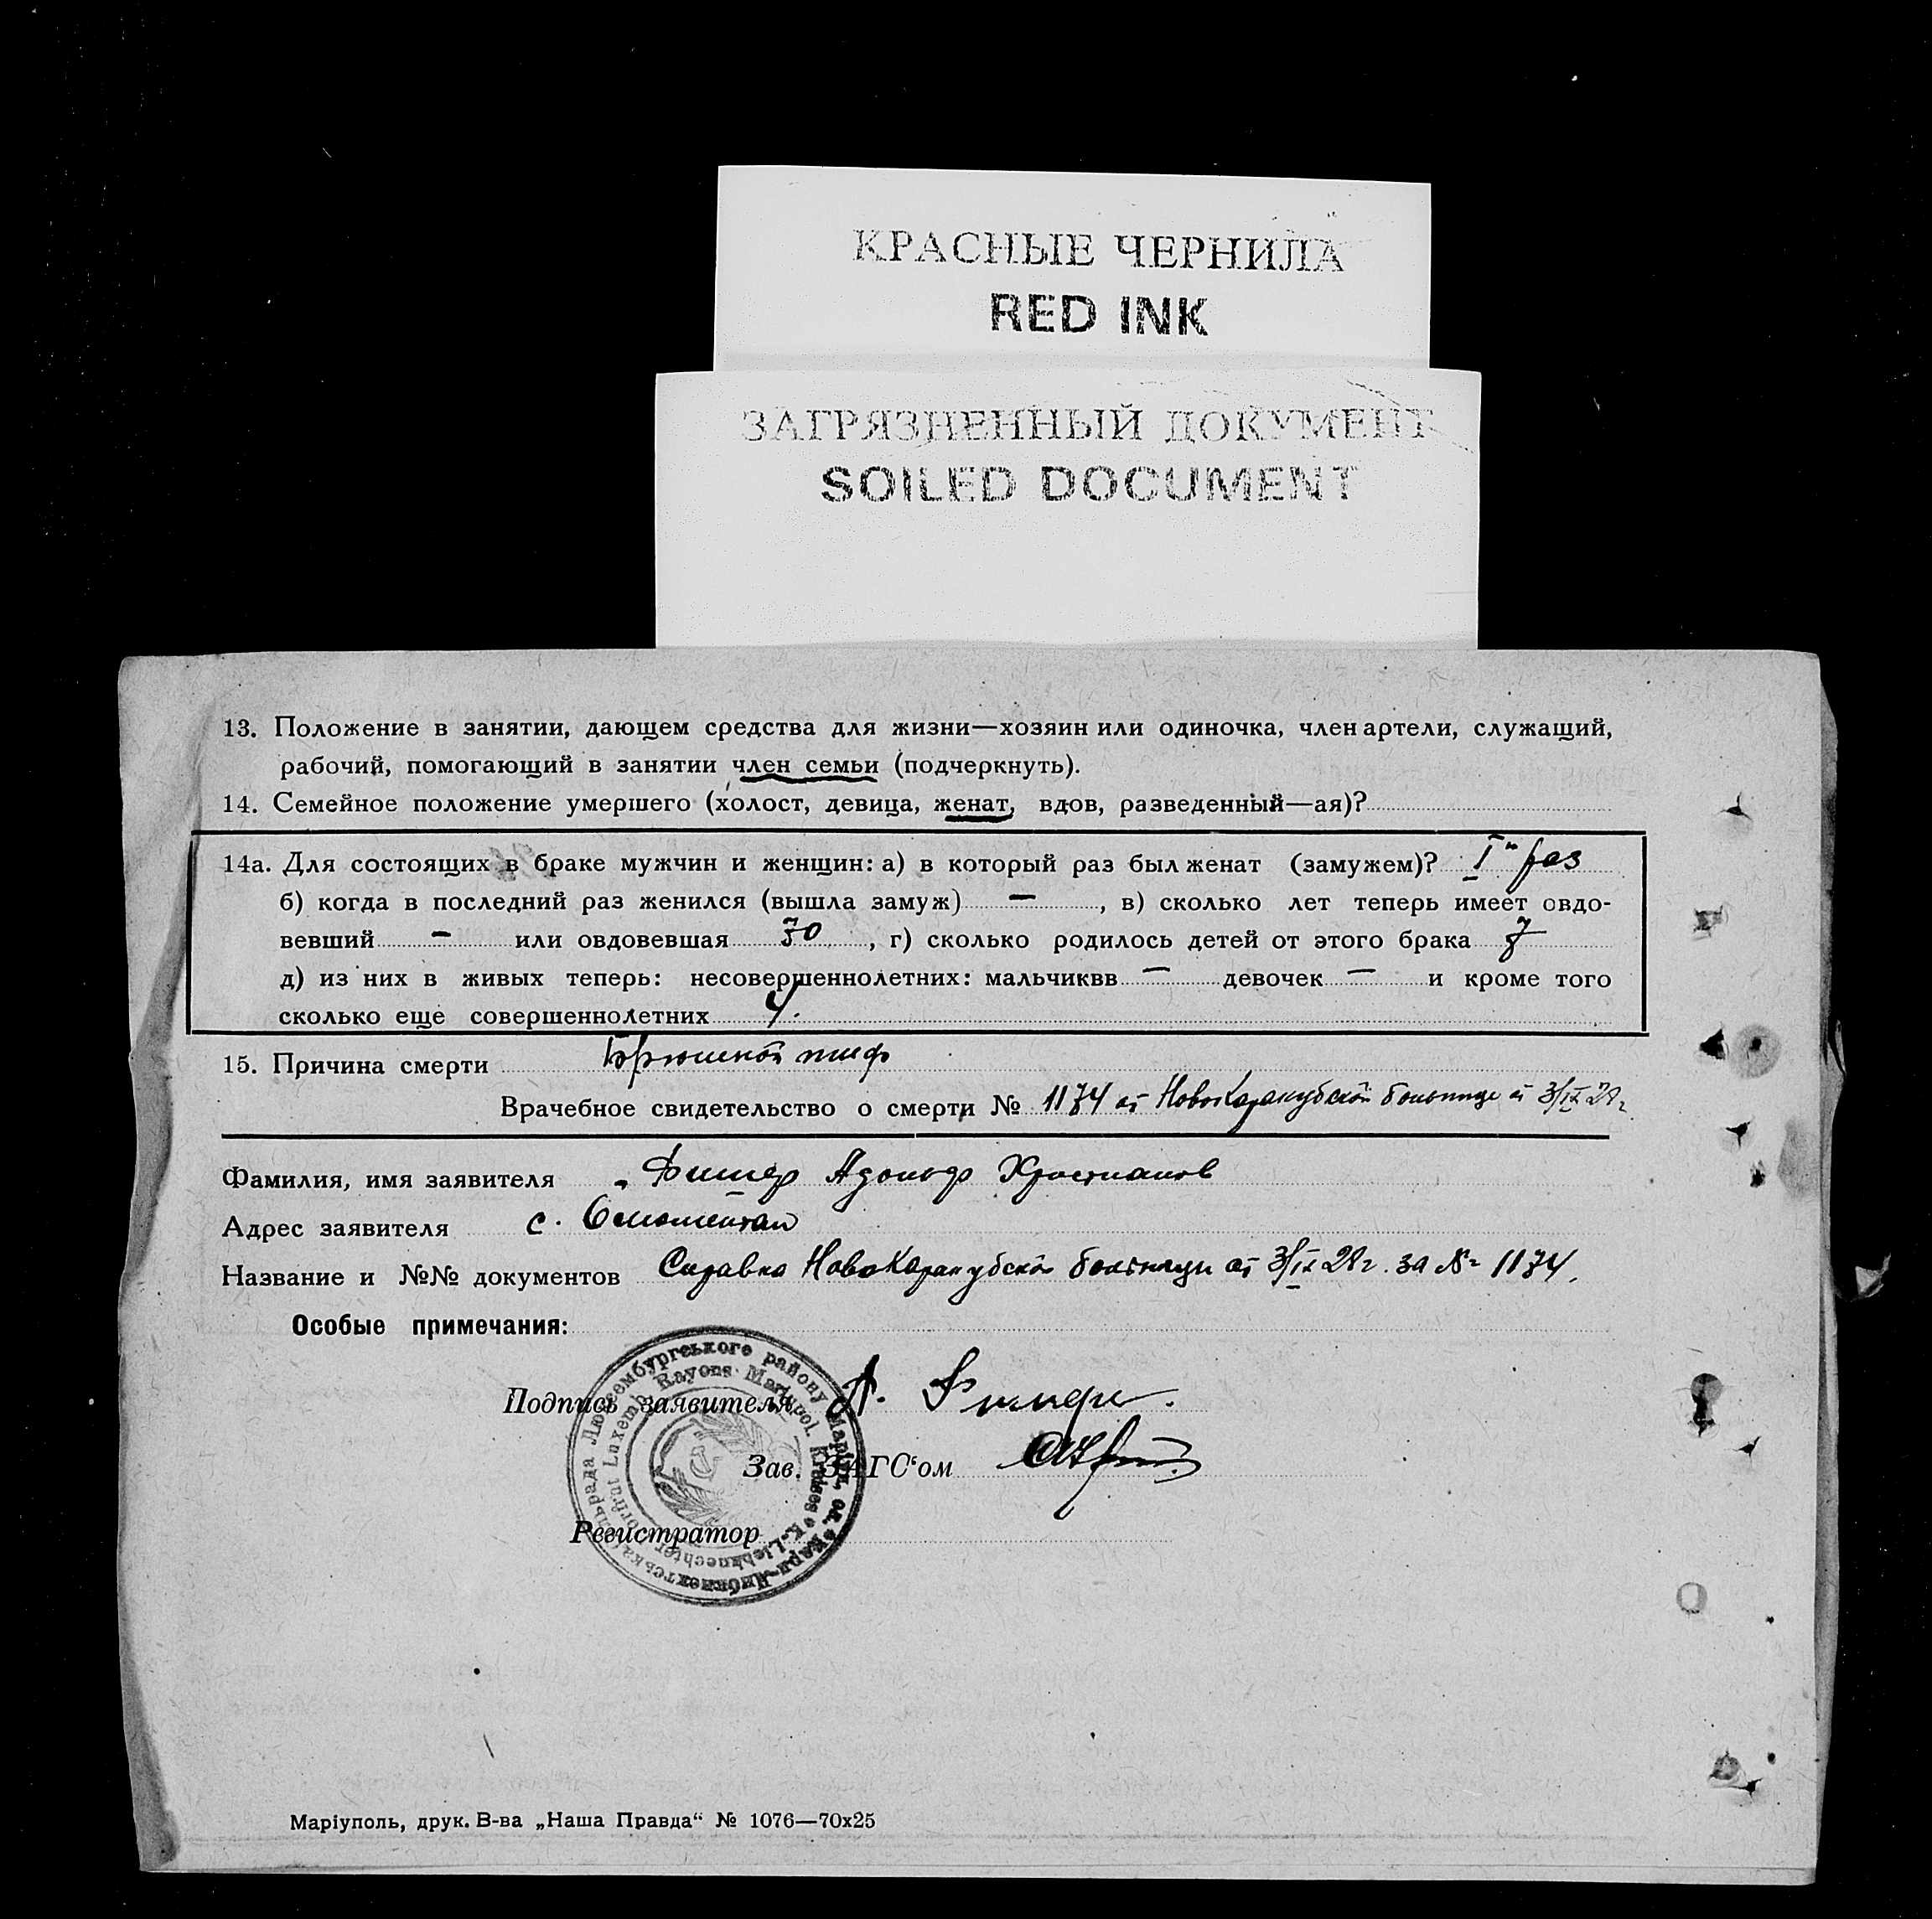 КРАСНЫЕ ЧЕРНИЛА
RED INK
ЗАГРЯЗНЕННЫЙ ДОКУМЕНТ
SOILED DOCUMENT
13. Положение в занятии, дающем средства для жизни—хозяин или одиночка, член артели, служащий,
рабочий, помогающий в занятии член семьи (подчеркнуть).
14. Семейное положение умершего (холост, девица, женат, вдов, разведенный—ая)?
14а. Для состоящих в браке мужчин и женщин: а) в который раз был женат (замужем)? I й раз
б) когда в последний раз женился (вышла замуж) — , в) сколько лет теперь имеет овдо-
вевший — или овдовевшая 70 , г) сколько родилось детей от этого брака 7
д) из них в живых теперь: несовершеннолетних: мальчиквв — девочек — и кроме того
сколько еще совершеннолетних 4.
15. Причина смерти Брюшной тиф
Врачебное свидетельство о смерти № 1174 от НовоКаракубской больнице от 3/IX 28 г.
Фамилия, имя заявителя Фишер Адольф Христианов
Адрес заявителя с.
Название и №№ документов Справка НовоКаракубской больницы от 3/IX 28 г. за № 1174.
Особые примечания:
Подпись заявителя А. Фишер.
Зав. ЗАГС'ом
Регистратор
Люксембургського району Маріюп. ок. Карл-Лібкнехтська сільрада
Dorfrat Luxemb. Rayons Mariupol. Kreises K. Liebknechter
Маріуполь, друк. В-ва „Наша Правда“ № 1076—70х25